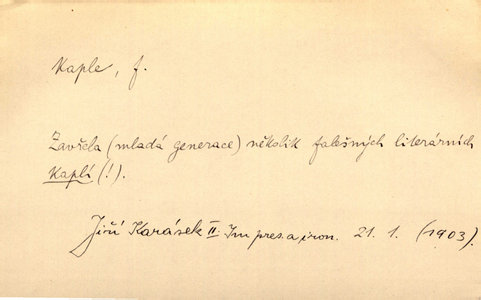 Kaple, f.
Zavřela (mladá generace) několik falešných literárních
kaplí (!).
Jiří Karásek II. Impres. a iron. 21. 1. (1903).